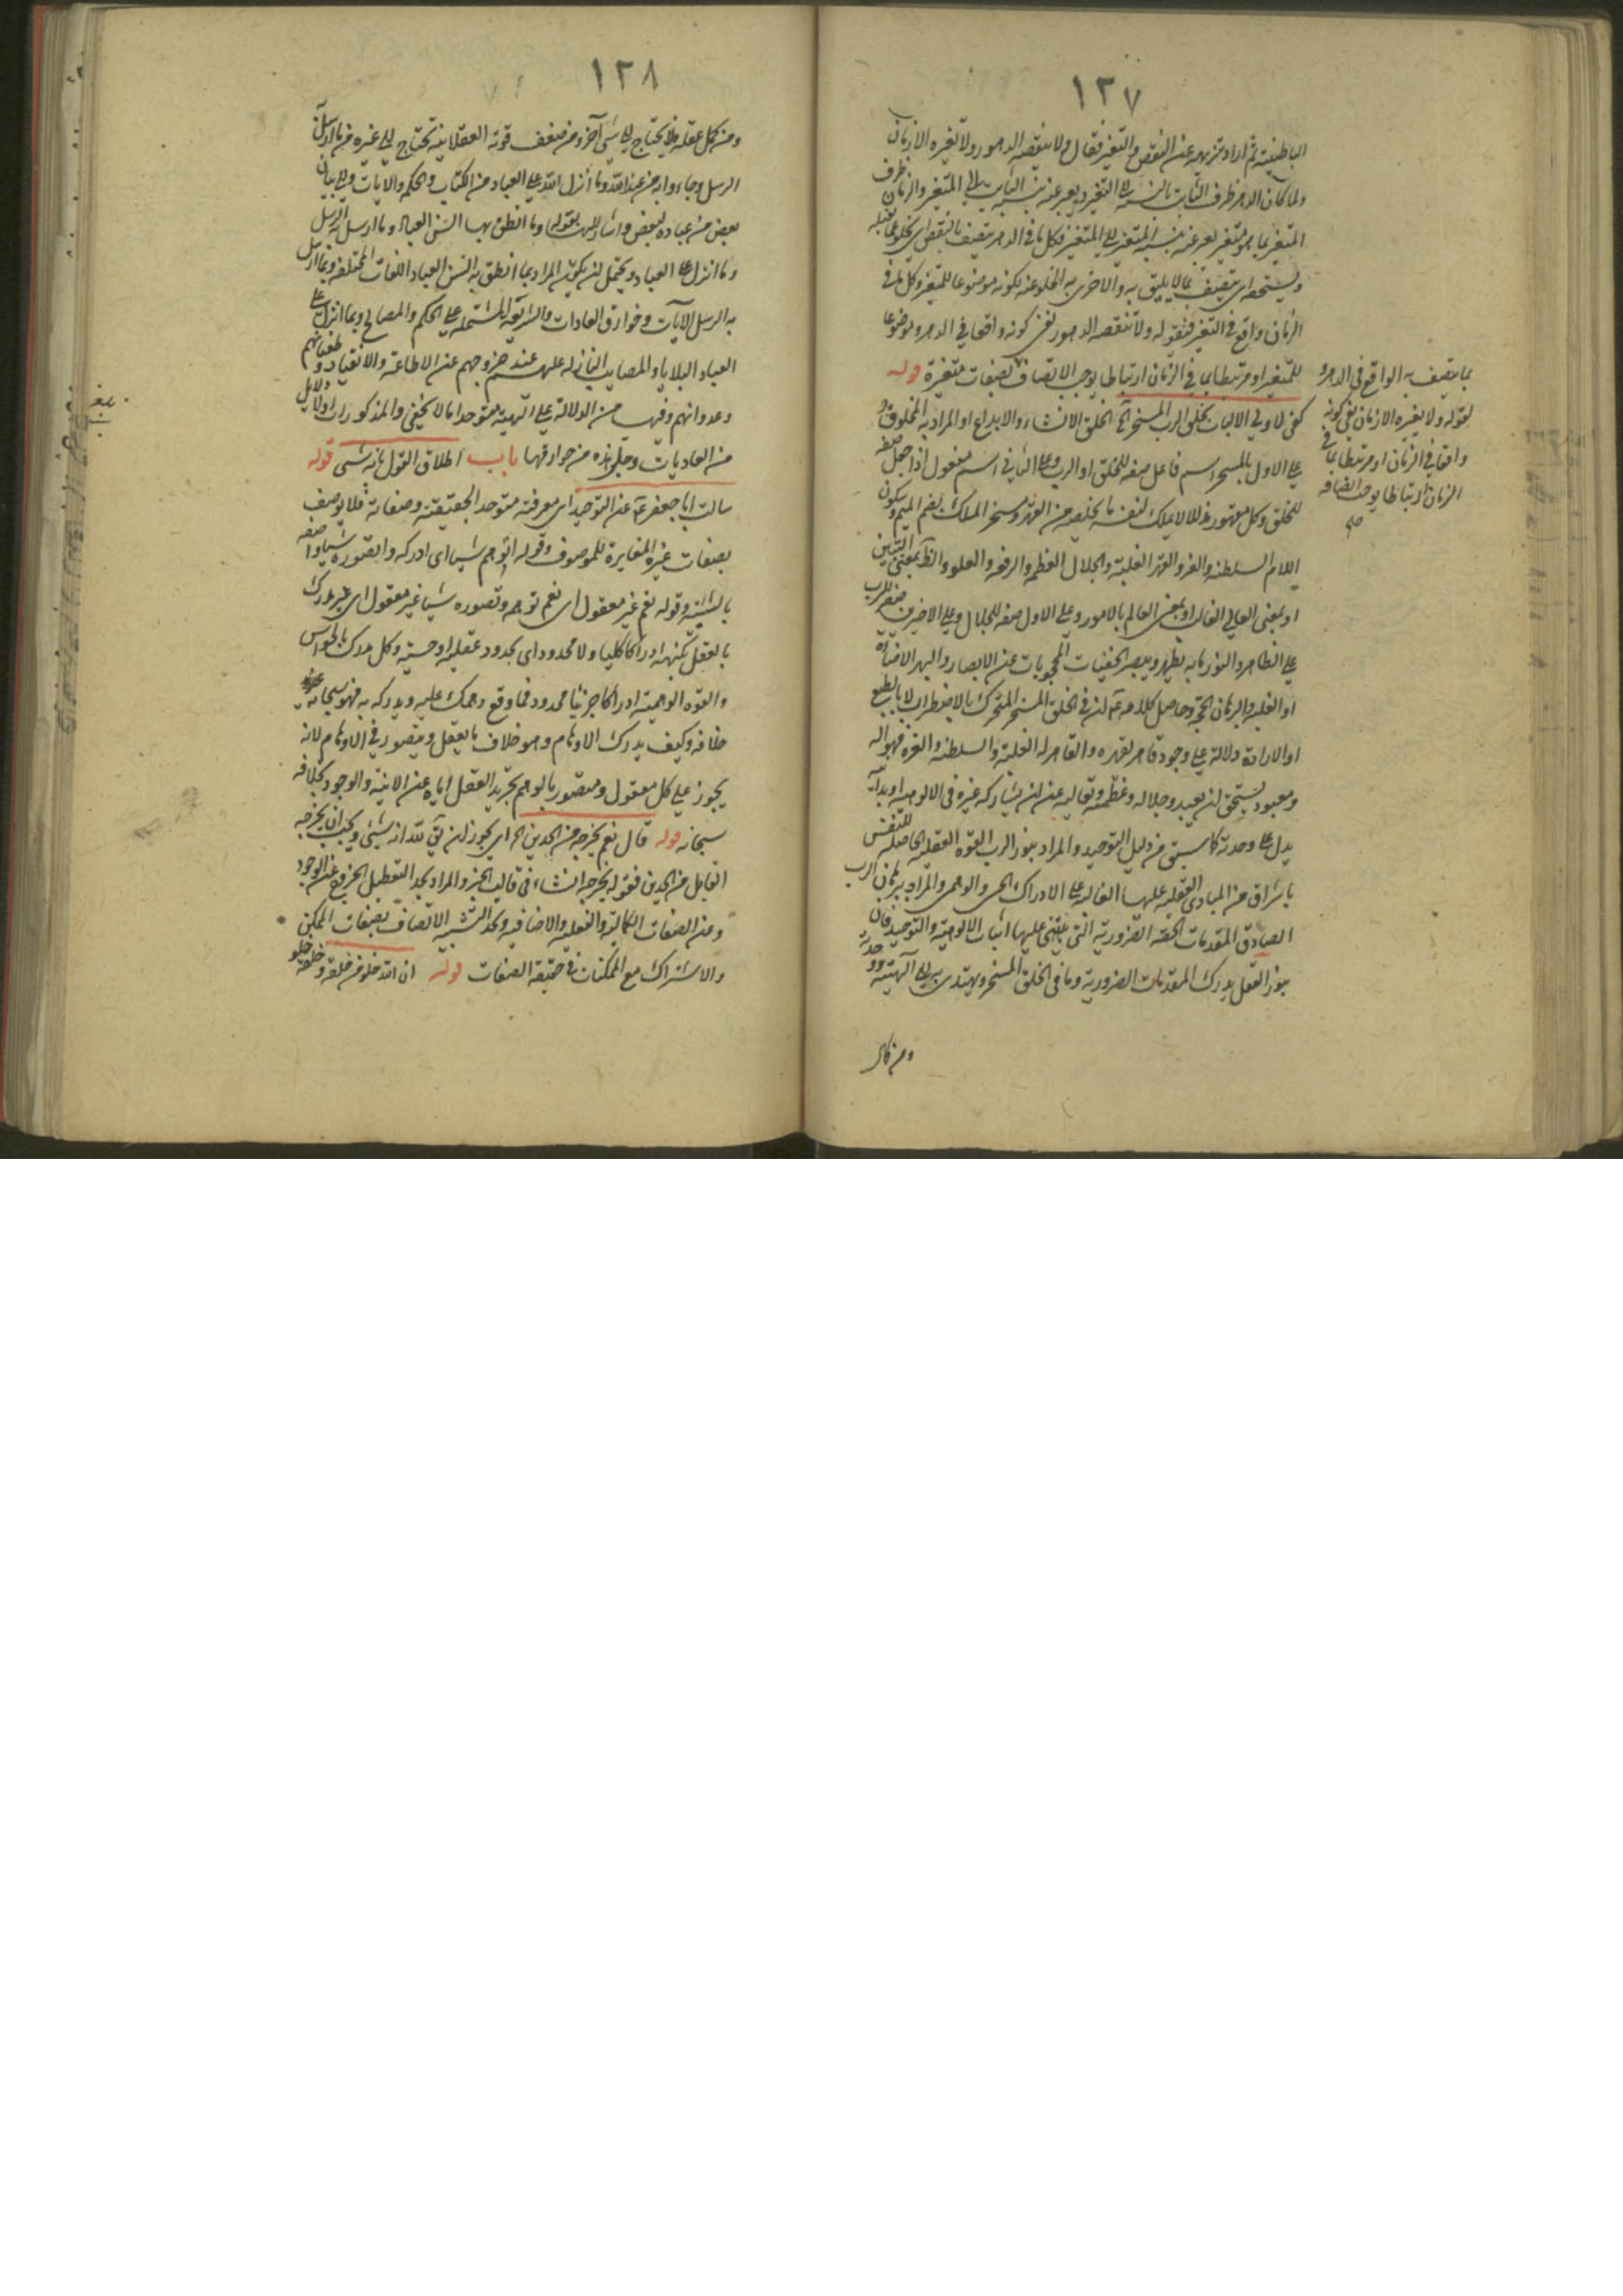 ١٢٧
الباطنية ثم اراد تنزيهه عن النقص والتغير فقال ولا تنقصه الدهور ولا تغيره الازمان
ولما كان الدهر ظرف الثابت بالنسبة الى المتغير ويعبر عنه بنسبة الثابت الى المتغير والزمان ظرف
المتغير بما هو متغير يعبر عنه بنسبة المتغير الى المتغير وكل ما في الدهر يتصف بالنقص اي بخلو عما يقبله
ويستحقه اي يتصف بما لا يليق به والاحرى به الخلو عنه بكونه موضوعا للمتغير وكل ما في
الزمان واقع في التغير فبقوله ولا تنقصه الدهور نفى كونه واقعا في الدهر وموضوعا
للمتغير او مرتبطا بما في الزمان ارتباطا يوجب الاتصاف بصفات متغيرة قوله
كفى لاولي الالباب بخلق الرب المسخر الخ الخلق الانشاء والابداع او المراد به المخلوق و
على الاول بالمسخر اسم فاعل صفة للخلق او الرب وعلى الثاني اسم مفعول اذا جعل صفة
للخلق وكل مقهور مذلل لا يملك لنفسه ما يخلصه من القهر مسخر الملك بضم الميم وسكون
اللام السلطنة والعز والقهر الغلبة والجلال العظمة والرفعة والعلو والظاهر بمعنى التبين
او بمعنى العالي الغالب او بمعنى العالم بالامور وعلى الاول صفة للجلال وعلى الاخيرين صفة للرب
على الظاهر والنور ما به يظهر ويبصر الخفيات المحجوبات عن الابصار والبهر الاضاءة
او الغلبة والبرهان الحجة وحاصل كلامه ع ان في الخلق المسخر المتحرك بالاضطرار لا بالطبع
او الارادة دلالة على وجود قاهر لقهره والقاهر له الغلبة والسلطنة والعزة فهو اله
ومعبود يستحق ان يعبد وجلاله وعظمته وتعاليه عن ان يشاركه غيره في الالوهية او يدانيه
يدل على وحدته كما سبق من دليل التوحيد والمراد بنور الرب القوة العقلية الحاصلة للنفس
باشراق من المبادي العقلية عليها الغالبة على الادراك الحسي والوهمي والمراد ببرهان الرب
الصادق المقدمات الحقة الضرورية التي يبتني عليها اثبات الالوهية والتوحيد فان
بنور العقل يدرك المقدمات الضرورية وما في الخلق المسخر ويهتدى به الى الهيته ووحدته
ومن كمل
بما يتصف به الواقع في الدهر و
بقوله ولا يغيره الازمان نفى كونه
واقعا في الزمان او مرتبطا بما في
الزمان ارتباطا يوجب اتصافه
صح
١٢٨
ومن كمل عقله فلا يحتاج الى شيء آخر ومن ضعف قوته العقلانية تحتاج الى غيره من ما ارسل
الرسل وجاءوا به من عند الله وما انزل الله على العباد من الكتاب والحكم والايات والى بيان
بعض من عباده لبعض واشار اليه بقوله وما انطق بها السن العباد وما ارسل به الرسل
وما انزل على العباد ويحتمل ان يكون المراد بما انطق به السن العباد اللغات المختلفة وبما ارسل
به الرسل الآيات وخوارق العادات والشرايع المشتملة على الحكم والمصالح وبما انزل على
العباد البلايا والمصايب النازلة عليهم عند خروجهم عن الاطاعة والانقياد وطغيانهم
وعدوانهم وفيها من الدلالة على الهية متوحدا ما لا يخفى والمذكورات اولا دلايل
من العاديات وجلي هذه من خوارقها باب اطلاق القول بانه شيء قوله
سالت ابا جعفر ع عن التوحيد اي معرفته متوحدا بحقيقته وصفاته فلا يوصف
بصفات غيره المغايرة للموصوف وقوله اتوهم شيئا اي ادركه واتصوره شيئا واصفه
بالشيئية وقوله نعم غير معقول اي نعم توهمه وتصوره شيئا غير معقول اي غير مدرك
بالعقل بكنهه ادراكا كليا ولا محدود اي بحدود عقلية او حسية وكل مدرك بالحواس
والقوة الوهمية ادراكا جزئيا محدود فما وقع وهمك عليه ويدركه به فهو سبحانه غيره
خلافه وكيف يدرك الاوهام وهو خلاف ما يعقل ويتصور في الاوهام لانه
يجوز على كل معقول ومتصور بالوهم تجريد العقل اياه عن الانية والوجود بخلافه
سبحانه قوله قال نعم يخرجه من الحدين الخ اي يجوز ان يق لله انه شيء ويجب ان يخرجه
القايل من الحدين فقوله يخرجه انشاء في قالب الخبر والمراد بحد التعطيل الخروج عن الوجود
وعن الصفات الكمالية والفعلية والاضافية وبحد التشبيه الاتصاف بصفات الممكن
والاشتراك مع الممكنات في حقيقة الصفات قوله ان الله خلو من خلقه وخلقه خلو